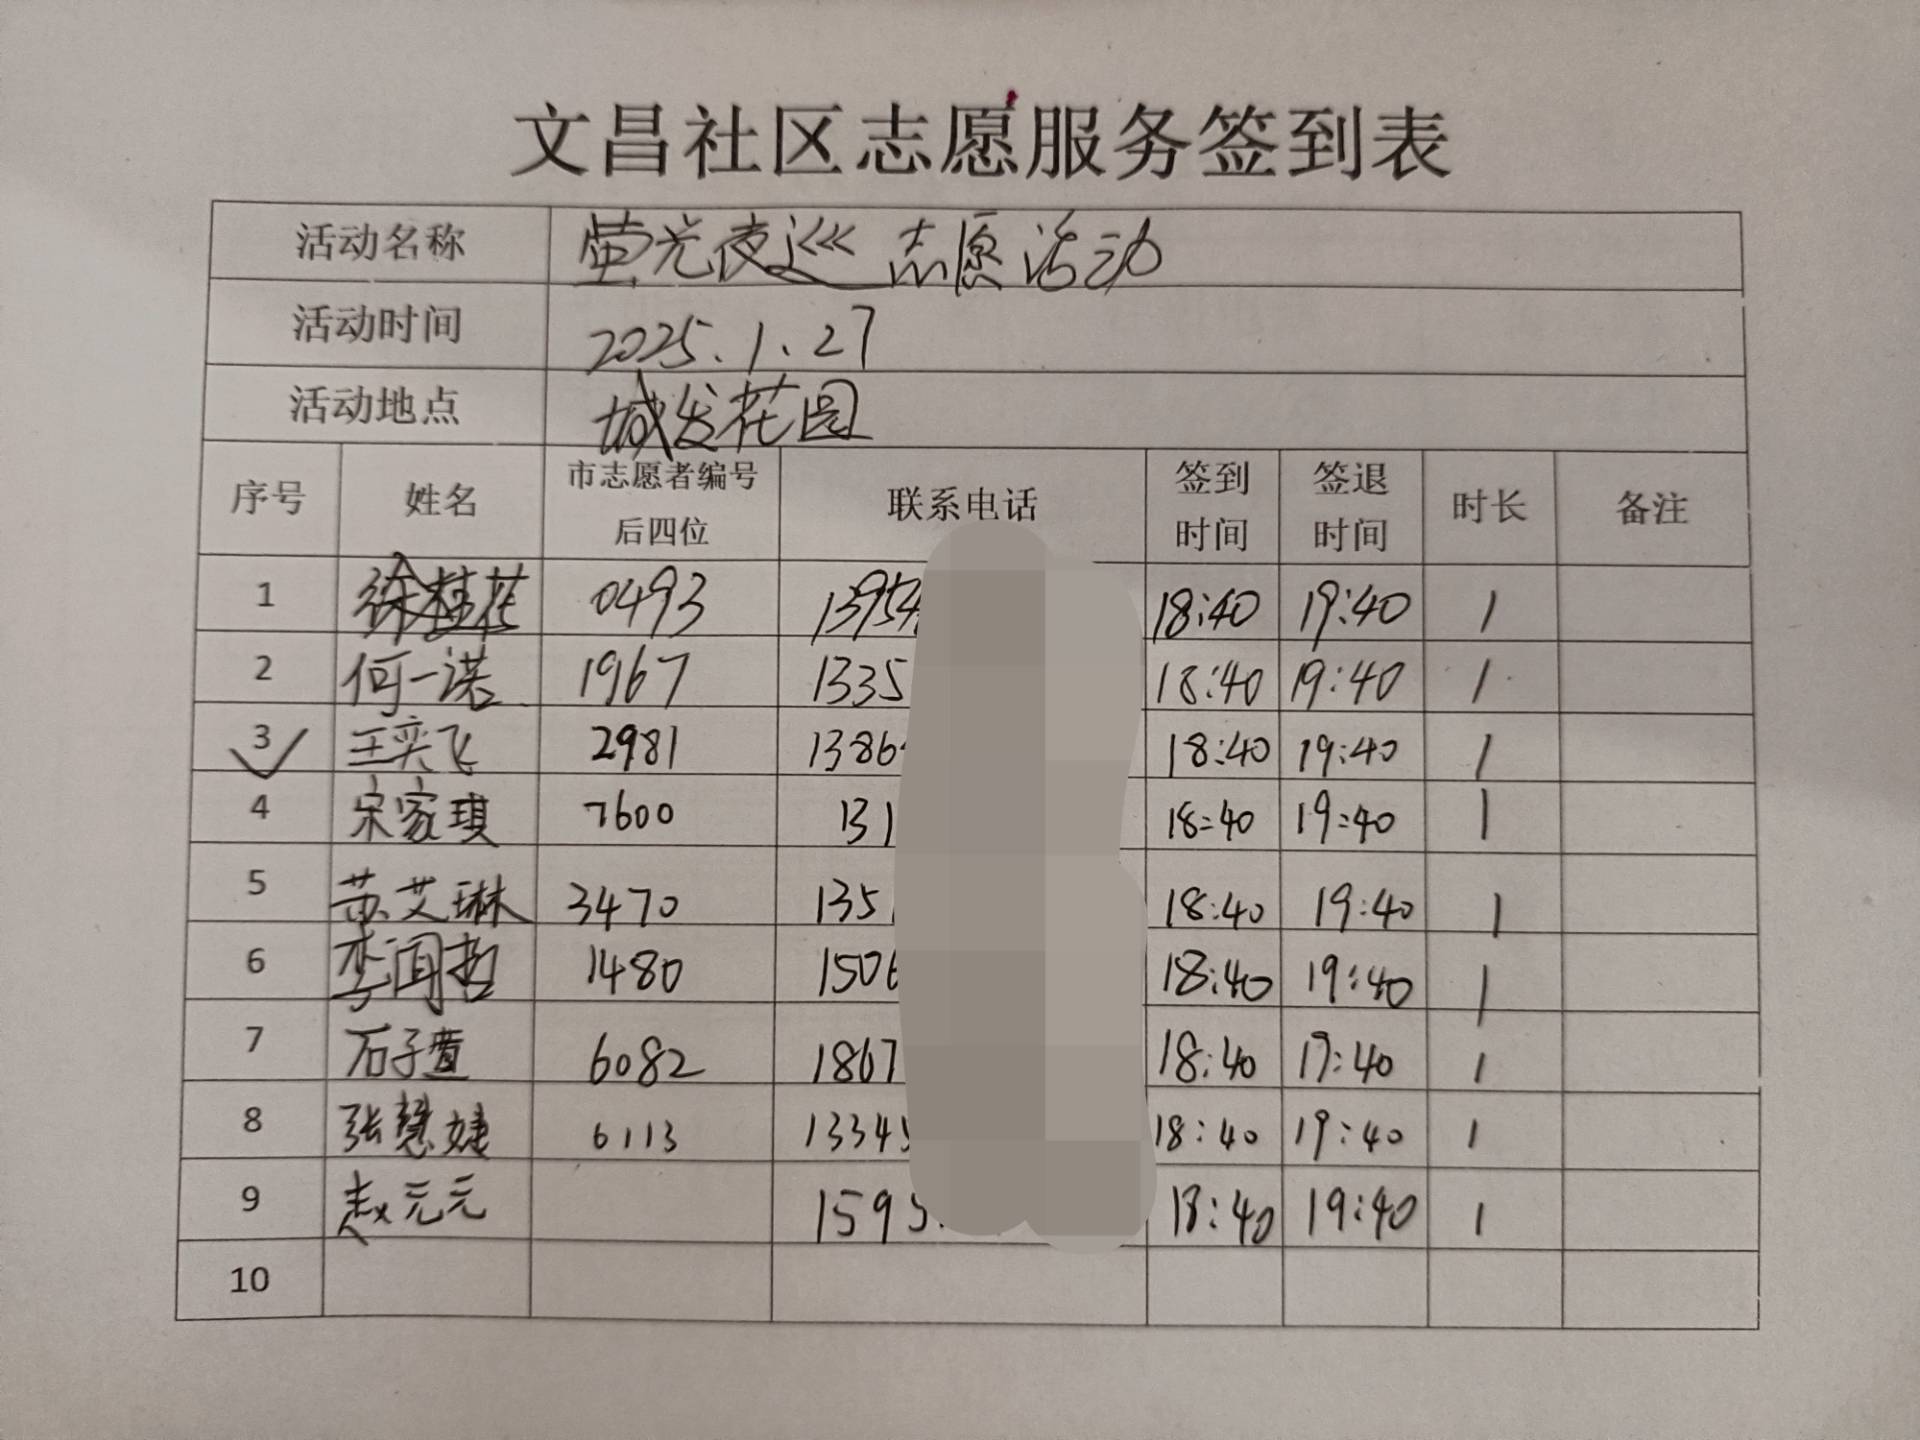 文昌社区志愿服务签到表
活动名称 萤光夜巡志愿活动
活动时间 2025.1.27
活动地点 城发花园
序号 姓名 市志愿者编号后四位 联系电话 签到时间 签退时间 时长 备注
1 徐桂花 0493 1395 18:40 19:40 1
2 何一诺 1967 1335 18:40 19:40 1
3 王奕飞 2981 1386 18:40 19:40 1
4 宋家琪 7600 131 18:40 19:40 1
5 苏艾琳 3470 135 18:40 19:40 1
6 李闻哲 1480 150 18:40 19:40 1
7 石子萱 6082 1867 18:40 19:40 1
8 张慧婕 6113 1334 18:40 19:40 1
9 赵元元 1595 18:40 19:40 1
10